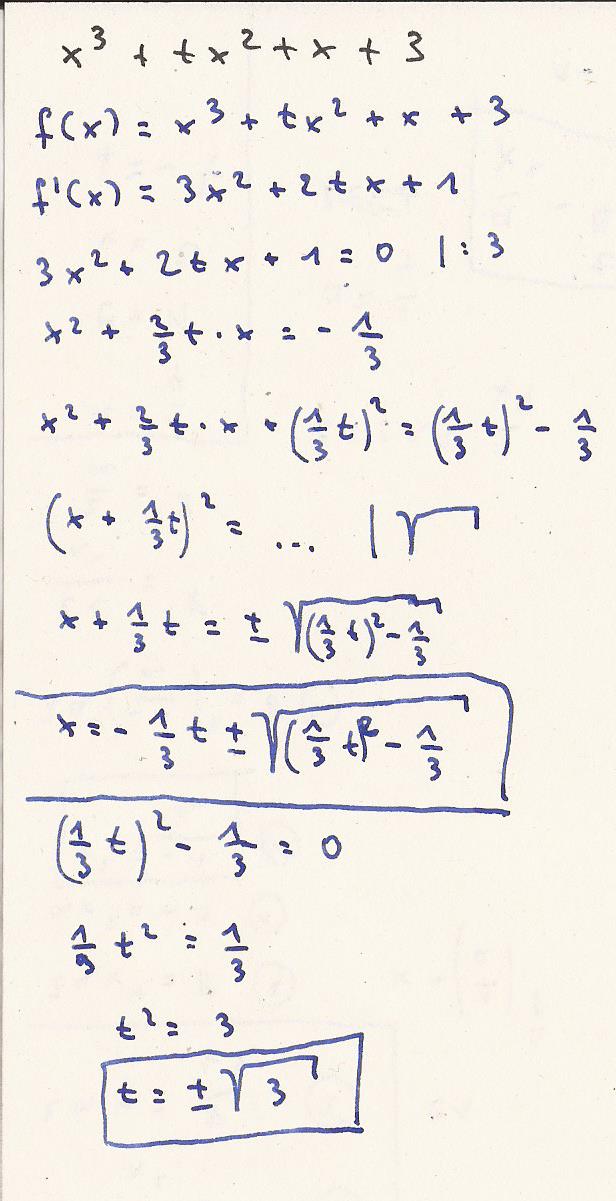 x³ + tx² + x + 3
f(x) = x³ + tx² + x + 3
f'(x) = 3x² + 2tx + 1
3x² + 2tx + 1 = 0 | : 3
x² + 2/3 t · x = - 1/3
x² + 2/3 t · x + (1/3 t)² = (1/3 t)² - 1/3
(x + 1/3 t)² = ... | √
x + 1/3 t = ± √((1/3 t)² - 1/3)
x = - 1/3 t ± √((1/3 t)² - 1/3)
(1/3 t)² - 1/3 = 0
1/9 t² = 1/3
t² = 3
t = ± √3